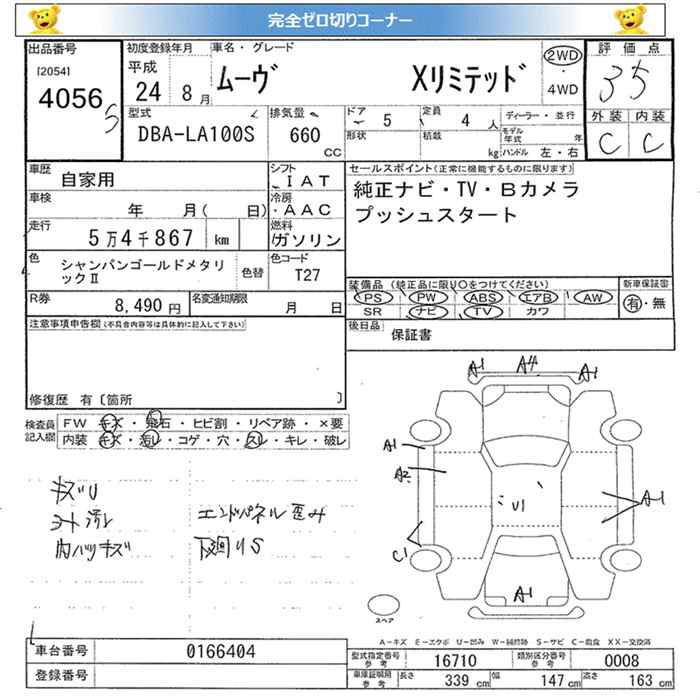 完全ゼロ切りコーナー
出品番号 初度登録年月 車名・グレード 評価点
[2054] 平成 ムーヴ Xリミテッド 2WD ・ 4WD 3.5
4056 24 8月
型式 排気量 ドア 5 定員 4人 ディーラー・並行 外装 内装
DBA-LA100S 660 CC 形状 積載 kg モデル年式 年 ハンドル 左・右 C C
車歴 自家用 シフト IAT セールスポイント(正常に機能するものに限ります)
車検 年 月( 日) 冷房 AAC 純正ナビ・TV・Bカメラ
走行 5万4千867 km 燃料 ガソリン プッシュスタート
色 シャンパンゴールドメタリックⅡ 色替 色コード T27
装備品(純正品に限り○をつけてください) 新車保証書
R券 8,490円 名変通知期限 月 日 PS PW ABS エアB AW 有・無
SR ナビ TV カワ
注意事項申告欄(不具合内容等は具体的に記入して下さい) 後日品 保証書
修復歴 有〔箇所 〕
検査員記入欄 FW キズ・飛石・ヒビ割・リペア跡・×要
内装 キズ・汚レ・コゲ・穴・スレ・キレ・破レ
A1 A4 A1
A1
A2
U1
A1
C1
A1
キズU
シート汚レ エンドパネル歪み
内ハリキズ 下廻りS
スペア
A-キズ E-エクボ U-凹み W-補修跡 S-サビ C-腐食 XX-交換済
車台番号 0166404 型式指定番号 参考 16710 類別区分番号 参考 0008
登録番号 車庫証明用 参考 長さ 339 cm 幅 147 cm 高さ 163 cm